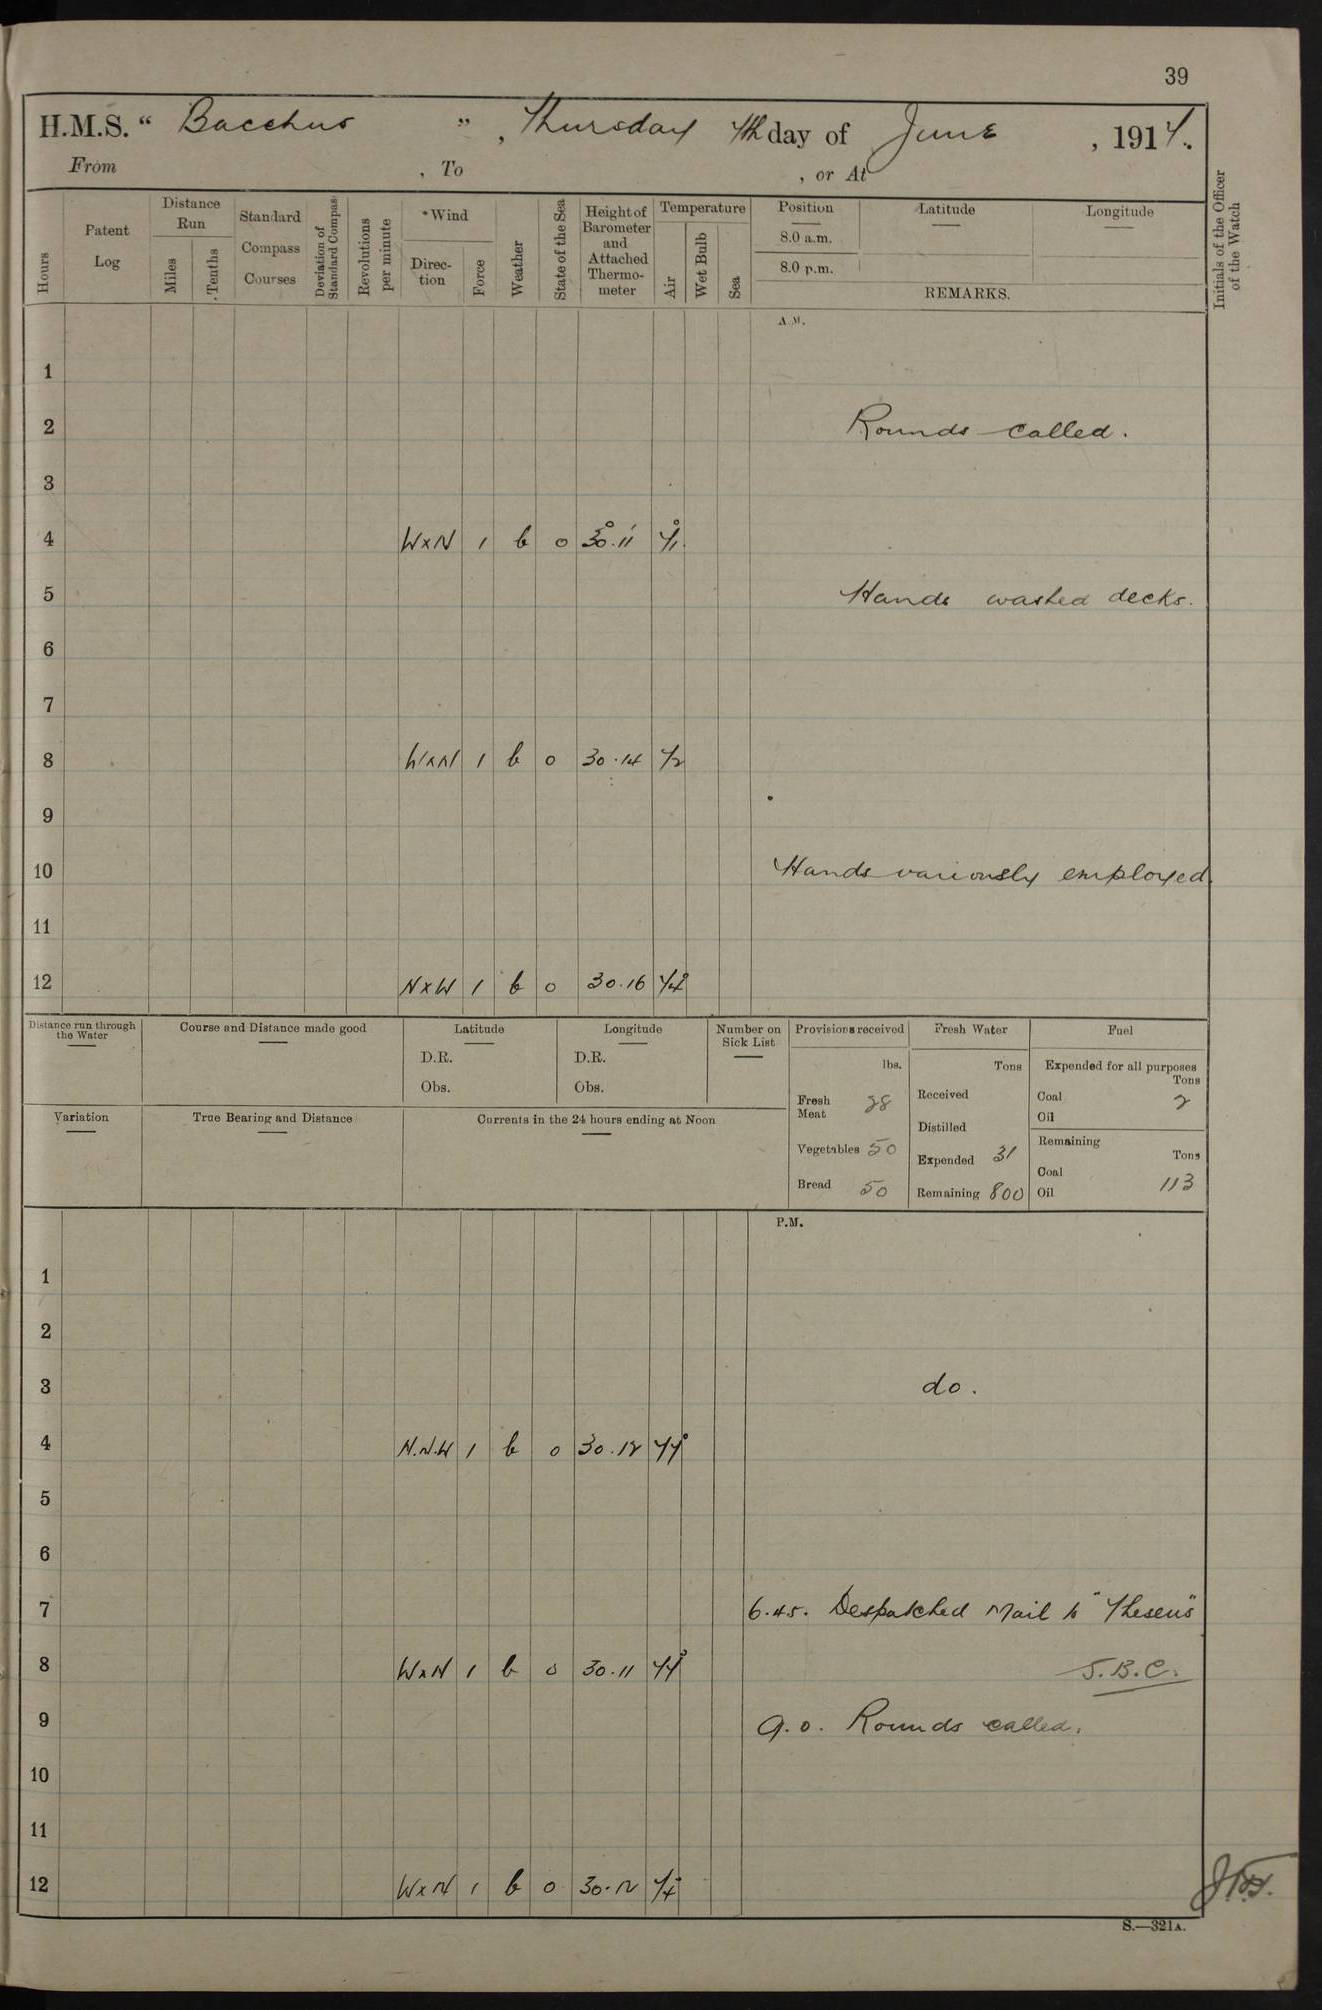 39
H.M.S. “ Bacchus ” , Thursday 7th day of June , 1917.
From , To , or At
Hours
Patent Log
Distance Run
Miles
Tenths
Standard Compass Courses
Deviation of Standard Compass
Revolutions per minute
*Wind
Direction
Force
Weather
State of the Sea
Height of Barometer and Attached Thermometer
Temperature
Air
Wet Bulb
Sea
Position
8.0 a.m.
8.0 p.m.
Latitude
Longitude
REMARKS.
Initials of the Officer of the Watch
A.M.
1
2 Rounds called.
3
4 WxN 1 b 0 30.11 71
5 Hands washed decks.
6
7
8 WxN 1 b 0 30.14 72
9
10 Hands variously employed.
11
12 NxW 1 b 0 30.16 74°
Distance run through the Water
Course and Distance made good
Latitude
D.R.
Obs.
Longitude
D.R.
Obs.
Number on Sick List
Provisions received
lbs.
Fresh Meat 28
Vegetables 50
Bread 50
Fresh Water
Tons
Received
Distilled
Expended 31
Remaining 800
Fuel
Expended for all purposes
Tons
Coal 2
Oil
Remaining
Tons
Coal 113
Oil
Variation
True Bearing and Distance
Currents in the 24 hours ending at Noon
P.M.
1
2
3 do.
4 N.N.W 1 b 0 30.12 77°
5
6
7 6.45. Despatched Mail to "Theseus"
8 WxN 1 b 0 30.11 77° J.B.C.
9 9.0. Rounds called.
10
11
12 WxN 1 b 0 30.12 74
S.—321A.